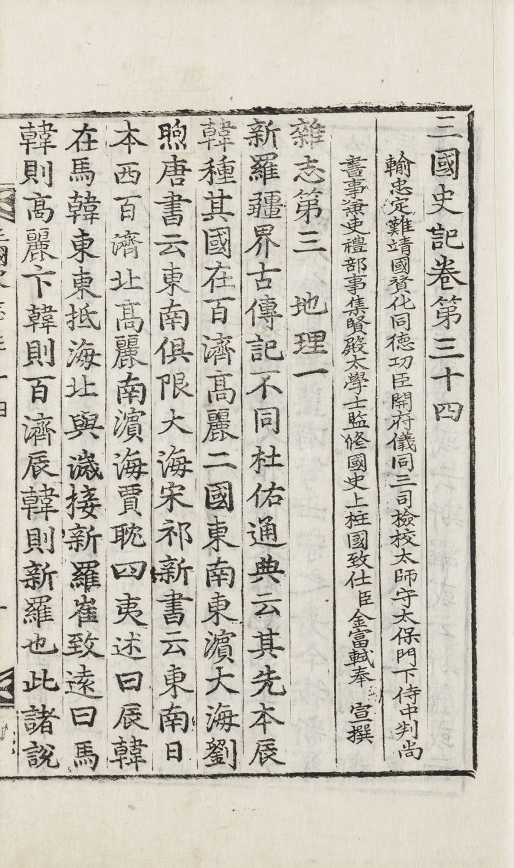 三國史記卷第三十四
輸忠定難靖國賛化同德功臣開府儀同三司檢校太師守太保門下侍中判尚
書事兼吏禮部事集賢殿太學士監修國史上柱國致仕臣金富軾奉 宣撰
雜志第三 地理一
新羅疆界古傳記不同杜佑通典云其先本辰
韓種其國在百濟高麗二國東南東濵大海劉
煦唐書云東南俱限大海宋祁新書云東南日
本西百濟北高麗南濵海賈耽四夷述曰辰韓
在馬韓東東抵海北與濊接新羅崔致遠曰馬
韓則高麗卞韓則百濟辰韓則新羅也此諸說